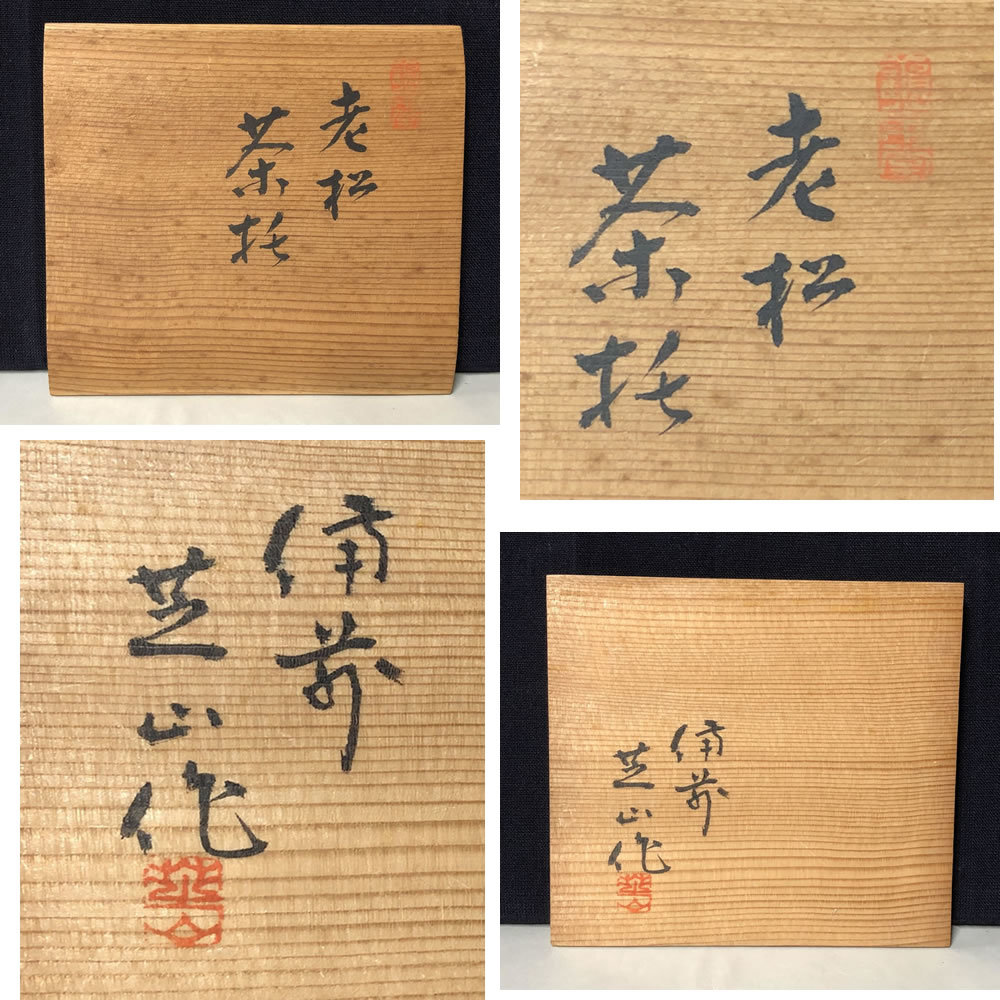 老松
茶托
老松
茶托
備前
芝山作
備前
芝山作